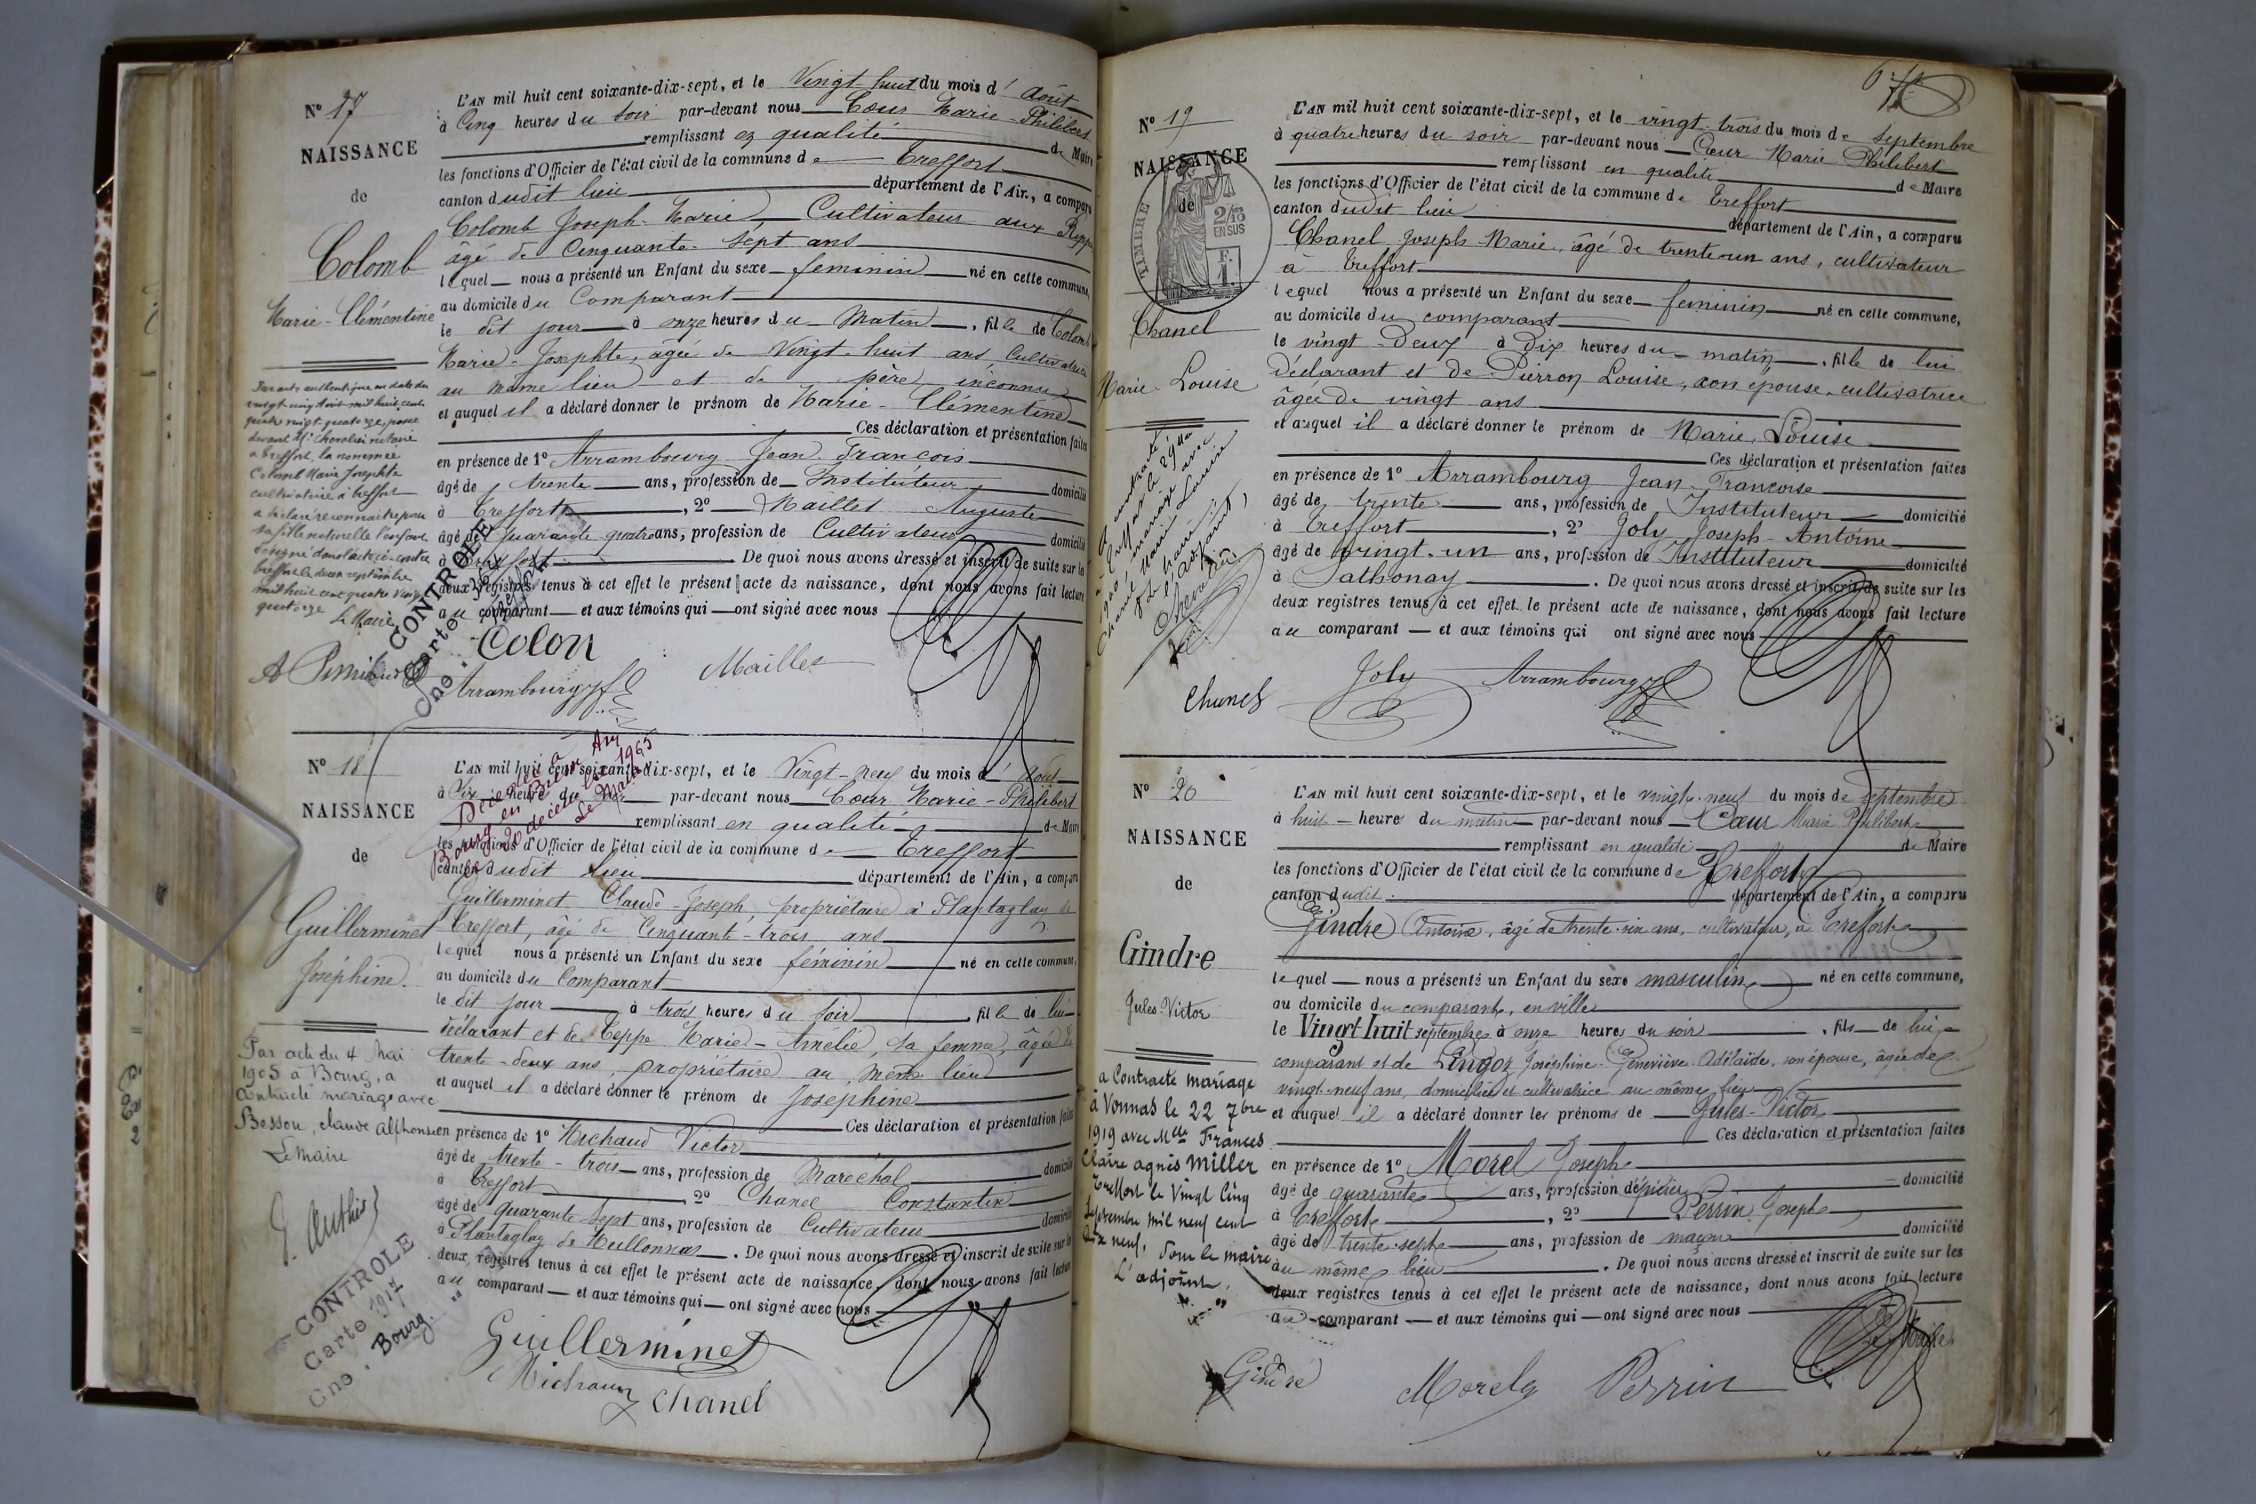 N° 17
NAISSANCE
de
Colomb
Marie-Clémentine
Par acte authentique en date du
vingt cinq Août mil huit cent
quatre vingt quatorze, passé
devant Me Chevalier notaire
a Treffort, la nommée
Colomb Marie Josephte
cultivatrice à Treffort
a déclaré reconnaitre pour
sa fille naturelle l'enfant
désigné dans l'acte ci-contre
Treffort le deux septembre
mil huit cent quatre vingt
quatorze
Le Maire
L'AN mil huit cent soixante-dix-sept, et le Vingt huit du mois d' Août
à Cinq heures du soir par-devant nous Cœur Marie-Philibert
remplissant en qualité de Maire
les fonctions d'Officier de l'état civil de la commune de Treffort
canton dudit lieu département de l'Ain, a comparu
Colomb Joseph-Marie Cultivateur aux
âgé de Cinquante-sept ans
lequel nous a présenté un Enfant du sexe feminin né en cette commune,
au domicile du Comparant
le dit jour à onze heures du Matin, fille de Colomb
Marie-Josephte, âgée de Vingt-huit ans Cultivatrice
au même lieu et de père inconnu
et auquel il a déclaré donner le prénom de Marie-Clémentine
Ces déclaration et présentation faites
en présence de 1° Arrambourg Jean François
âgé de trente ans, profession de Instituteur domicilié
à Treffort, 2° Maillet Auguste
âgé de Quarante quatre ans, profession de Cultivateur domicilié
à Treffort. De quoi nous avons dressé et inscrit de suite sur les
deux registres tenus à cet effet le présent acte de naissance, dont nous avons fait lecture
au comparant et aux témoins qui ont signé avec nous
CONTROLE
Carte
Cne.
Colon
Arrambourg
Mailles
N° 18
NAISSANCE
de
Guillerminet
Joséphine.
Par acte du 4 Mai
1905 à Bourg, a
contracté mariage avec
Besson, claude alphonse
Le Maire
CONTROLE
Carte 1917
Cne. Bourg.
Décédée à
Bourg en Bresse Ain
le 20 décembre 1965
Le Maire
L'AN mil huit cent soixante-dix-sept, et le Vingt-neuf du mois d' Août
à Six heures du soir par-devant nous Cœur Marie-Philibert
remplissant en qualité de Maire
les fonctions d'Officier de l'état civil de la commune de Treffort
canton dudit lieu département de l'Ain, a comparu
Guillerminet Claude-Joseph, propriétaire à Plantaglay de
Treffort, âgé de Cinquante-trois ans
lequel nous a présenté un Enfant du sexe féminin né en cette commune,
au domicile du Comparant
le dit jour à trois heures du soir, fille de lui
déclarant et de Teppe Marie-Amélie, sa femme, âgée de
trente-deux ans, propriétaire au même lieu
et auquel il a déclaré donner le prénom de Joséphine
Ces déclaration et présentation faites
en présence de 1° Michaud Victor
âgé de trente-trois ans, profession de Maréchal domicilié
à Treffort, 2° Chanel Constantin
âgé de quarante sept ans, profession de Cultivateur domicilié
à Plantaglay de Meillonnas. De quoi nous avons dressé et inscrit de suite sur les
deux registres tenus à cet effet le présent acte de naissance, dont nous avons fait lecture
au comparant et aux témoins qui ont signé avec nous
Guillerminet
Michaud
Chanel
N° 19
NAISSANCE
de
TIMBRE
2/10
EN SUS
F.
1.
Chanel
Marie-Louise
a contracté
à Treffort le 29
mariage avec
Marie Louise
L'AN mil huit cent soixante-dix-sept, et le vingt-trois du mois de septembre
à quatre heures du soir par-devant nous Cœur Marie Philibert
remplissant en qualité de Maire
les fonctions d'Officier de l'état civil de la commune de Treffort
canton dudit lieu département de l'Ain, a comparu
Chanel Joseph Marie, âgé de trente-un ans, cultivateur
à Treffort
lequel nous a présenté un Enfant du sexe feminin né en cette commune,
au domicile du comparant
le vingt-Deux à Dix heures du matin, fille de lui
déclarant et de Pierron Louise, son épouse, cultivatrice
âgée de vingt ans
et auquel il a déclaré donner le prénom de Marie, Louise
Ces déclaration et présentation faites
en présence de 1° Arrambourg Jean-Françoise
âgé de trente ans, profession de Instituteur domicilié
à Treffort, 2° Joly Joseph-Antoine
âgé de vingt-un ans, profession de Instituteur domicilié
à Sathonay. De quoi nous avons dressé et inscrit de suite sur les
deux registres tenus à cet effet le présent acte de naissance, dont nous avons fait lecture
au comparant et aux témoins qui ont signé avec nous
Chanel
Joly
Arrambourg
N° 20
NAISSANCE
de
Gindre
Jules-Victor
a Contracté mariage
à Vonnas le 22 7bre
1919 avec Mlle Frances
Claire agnès Miller
Treffort le Vingt Cinq
Septembre mil neuf cent
dix neuf,
Pour le maire
L'adjoint,
L'AN mil huit cent soixante-dix-sept, et le vingt-neuf du mois de septembre
à huit heures du matin par-devant nous Cœur Marie Philibert
remplissant en qualité de Maire
les fonctions d'Officier de l'état civil de la commune de Treffort
canton dudit département de l'Ain, a comparu
Gindre Antoine, âgé de trente-six ans, cultivateur, à Treffort
lequel nous a présenté un Enfant du sexe masculin né en cette commune,
au domicile du comparant, en ville
le Vingt huit septembre à onze heures du soir, fils de lui
comparant et de Lingoz Joséphine-Geneviève-Adélaïde, son épouse, âgée de
vingt-neuf ans, domiciliée et cultivatrice au même lieu
et auquel il a déclaré donner les prénoms de Jules-Victor
Ces déclaration et présentation faites
en présence de 1° Morel Joseph
âgé de quarante ans, profession d'épicier domicilié
à Treffort, 2° Perrin Joseph
âgé de trente-sept ans, profession de maçon domicilié
au même lieu. De quoi nous avons dressé et inscrit de suite sur les
deux registres tenus à cet effet le présent acte de naissance, dont nous avons fait lecture
au comparant et aux témoins qui ont signé avec nous
Gindre
Morel
Perrin